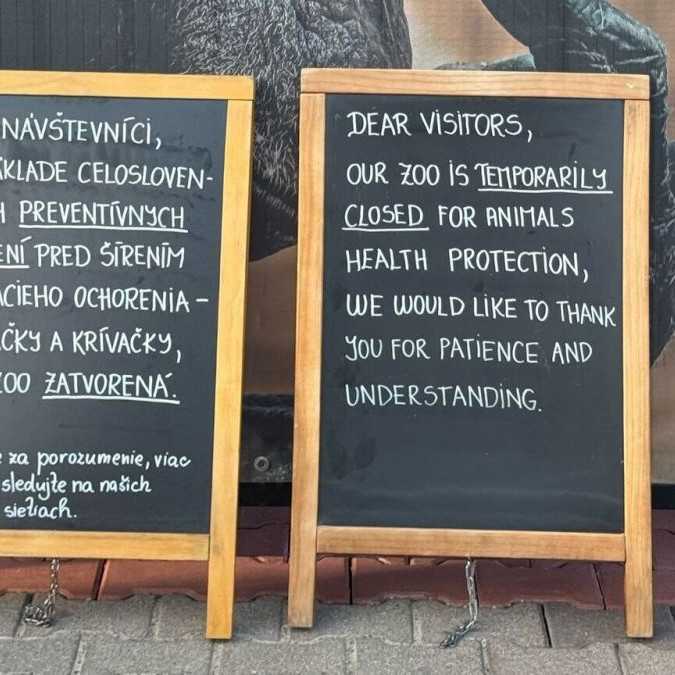 NÁVŠTEVNÍCI,
ÁKLADE CELOSLOVEN-
H PREVENTÍVNYCH
ENÍ PRED ŠÍRENÍM
ACIEHO OCHORENIA –
ČKY A KRÍVAČKY,
ZOO ZATVORENÁ.
za porozumenie, viac
sledujte na našich
sieťach.
DEAR VISITORS,
OUR ZOO IS TEMPORARILY
CLOSED FOR ANIMALS
HEALTH PROTECTION,
WE WOULD LIKE TO THANK
YOU FOR PATIENCE AND
UNDERSTANDING.